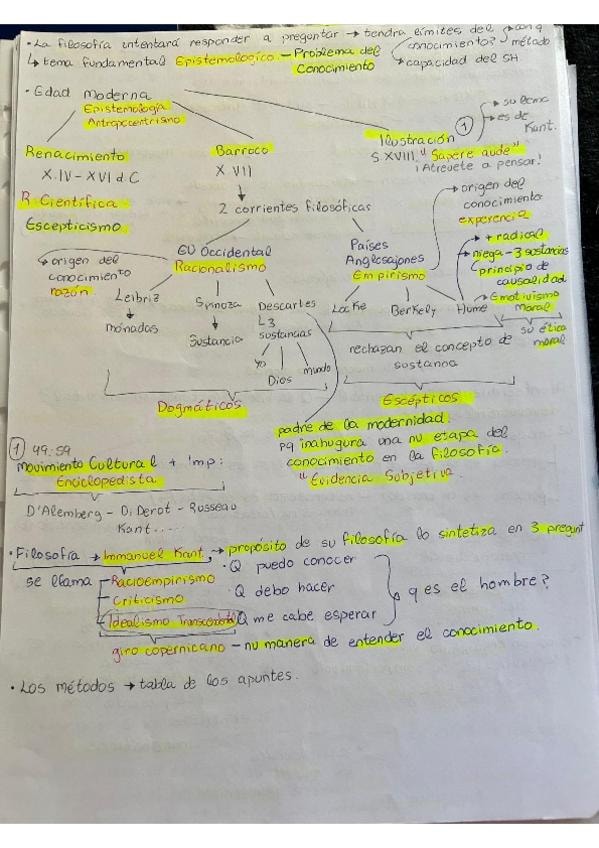 · La filosofía intentará responder a preguntar → tendra límites del
conocimiento? método
↳ tema fundamental Epistemologico - Problema del
Conocimiento
→ capacidad del SH
· Edad Moderna
Epistemología
Antropocentrismo
Renacimiento
X.IV - XVI d C
R. Científica
Escepticismo.
Barroco
X VII
Ilustración ①
S. XVIII "Sapere aude"
¡Atrevete a pensar!
→ su lema
→ es de
Kant.
2 corrientes filosóficas
EU Occidental
Racionalismo
→ origen del
conocimiento
razón.
Leibniz
monadas
Spinoza
Sustancia
Descartes
↳ 3
sustancias
yo
Dios
mundo
Dogmáticos
Países
Anglosajones
Empirismo
→ origen del
conocimiento
experencia
Locke
Berkely
Hume
→ + radical
→ niega - 3 sustancias
principio de
causalidad
→ Emotivismo
Moral
su ética
moral
rechazan el concepto de
sustanna
Escépticos
padre de la modernidad.
Pq inahugura una nu etapa del
conocimiento en la filosofía.
"Evidencia Subjetiva
① 49:59
Movimiento Cultural + imp:
Enciclopedista
D'Alemberg - Di Derot - Rosseau
Kant....
· Filosofía → Immanuel Kant → propósito de su filosofía lo sintetiza en 3 pregunt
se llama
Racioempirismo
Criticismo
Idealismo Transcendental
· Q puedo conocer
Q debo hacer
Q me cabe esperar
q es el hombre?
giro copernicano - nu manera de entender el conocimiento.
· Los métodos → tabla de los apuntes.